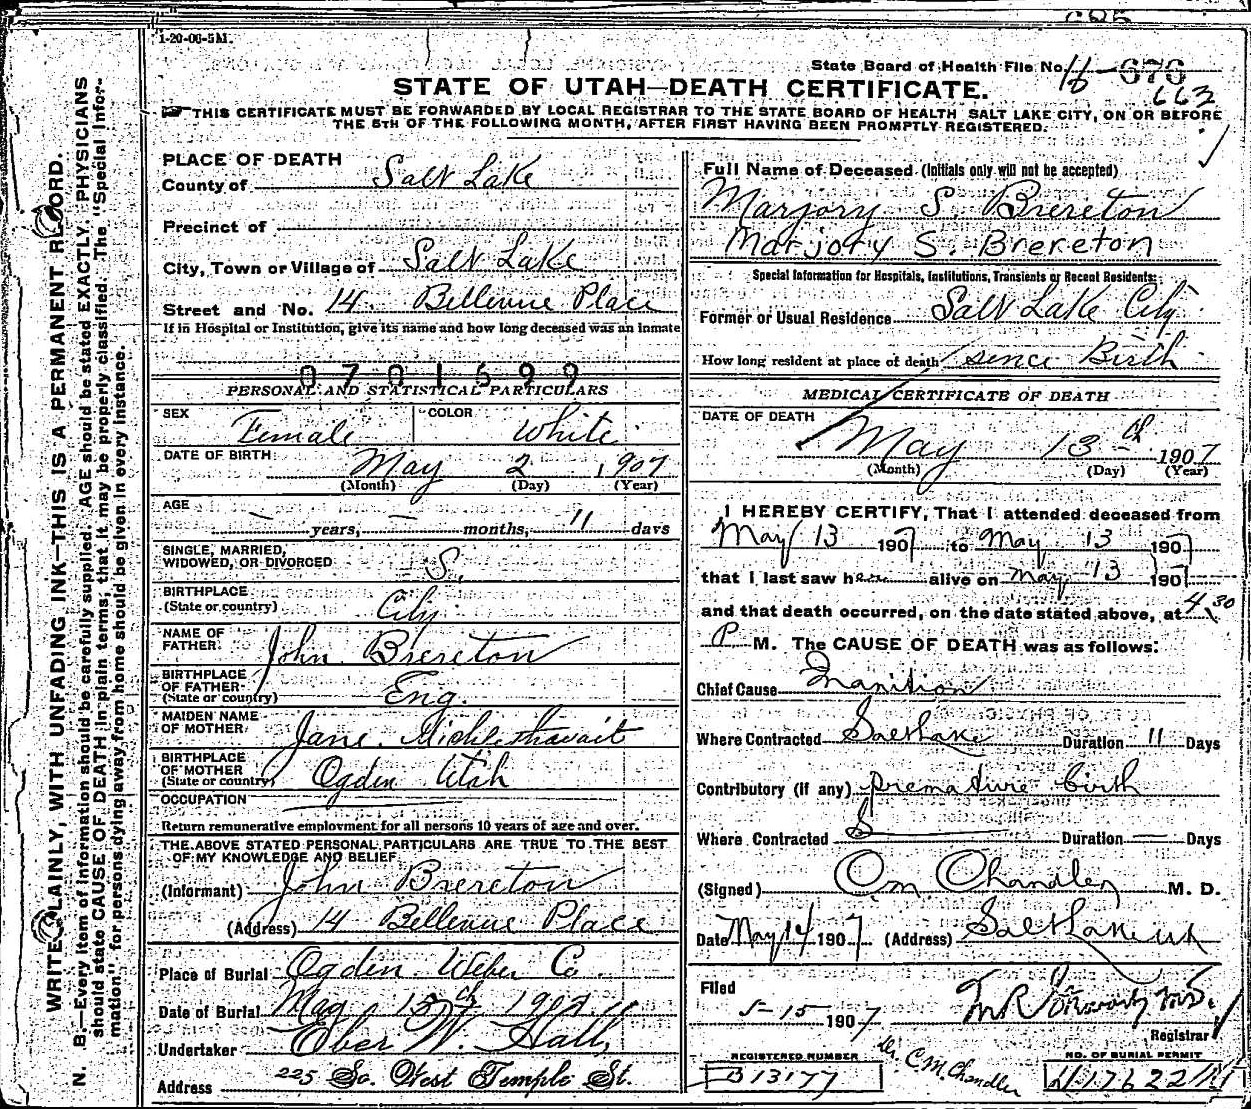 1-20-06-5M.
State Board of Health File No. 16-676
663
STATE OF UTAH—DEATH CERTIFICATE.
THIS CERTIFICATE MUST BE FORWARDED BY LOCAL REGISTRAR TO THE STATE BOARD OF HEALTH SALT LAKE CITY, ON OR BEFORE
THE 5TH OF THE FOLLOWING MONTH, AFTER FIRST HAVING BEEN PROMPTLY REGISTERED.
WRITE PLAINLY, WITH UNFADING INK—THIS IS A PERMANENT RECORD.
N. B.—Every item of information should be carefully supplied. AGE should be stated EXACTLY. PHYSICIANS
should state CAUSE OF DEATH in plain terms, that it may be properly classified. The "Special Infor-
mation" for persons dying away from home should be given in every instance.
PLACE OF DEATH
County of Salt Lake
Precinct of
City, Town or Village of Salt Lake
Street and No. 14. Bellevue Place
If in Hospital or Institution, give its name and how long deceased was an inmate
0701599
PERSONAL AND STATISTICAL PARTICULARS
SEX Female COLOR White
DATE OF BIRTH May 2 1907
(Month) (Day) (Year)
AGE — years, — months, 11 days
SINGLE, MARRIED,
WIDOWED, OR DIVORCED S.
BIRTHPLACE
(State or country) City
NAME OF
FATHER John Brereton
BIRTHPLACE
OF FATHER
(State or country) Eng.
MAIDEN NAME
OF MOTHER Jane Micklethwait
BIRTHPLACE
OF MOTHER
(State or country) Ogden Utah
OCCUPATION
Return remunerative employment for all persons 10 years of age and over.
THE ABOVE STATED PERSONAL PARTICULARS ARE TRUE TO THE BEST
OF MY KNOWLEDGE AND BELIEF
(Informant) John Brereton
(Address) 14 Bellevue Place
Place of Burial Ogden Weber Co.
Date of Burial May 15th 1907
Undertaker Eber W. Hall
Address 225 So. West Temple St.
Full Name of Deceased (Initials only will not be accepted)
Marjory S. Brereton
Marjory S. Brereton
Special Information for Hospitals, Institutions, Transients or Recent Residents:
Former or Usual Residence Salt Lake City
How long resident at place of death since Birth
MEDICAL CERTIFICATE OF DEATH
DATE OF DEATH May 13th 1907
(Month) (Day) (Year)
I HEREBY CERTIFY, That I attended deceased from
May 13 1907 to May 13 1907
that I last saw her alive on May 13 1907
and that death occurred, on the date stated above, at 4.30
P M. The CAUSE OF DEATH was as follows:
Chief Cause Inanition
Where Contracted Salt Lake Duration 11 Days
Contributory (if any) premature birth
Where Contracted S Duration — Days
(Signed) C.M. Chandler M. D.
Date May 14 1907 (Address) Salt Lake Utah
Filed
5-15-1907
Registrar
REGISTERED NUMBER
B13177
Dr. C. M. Chandler
NO. OF BURIAL PERMIT